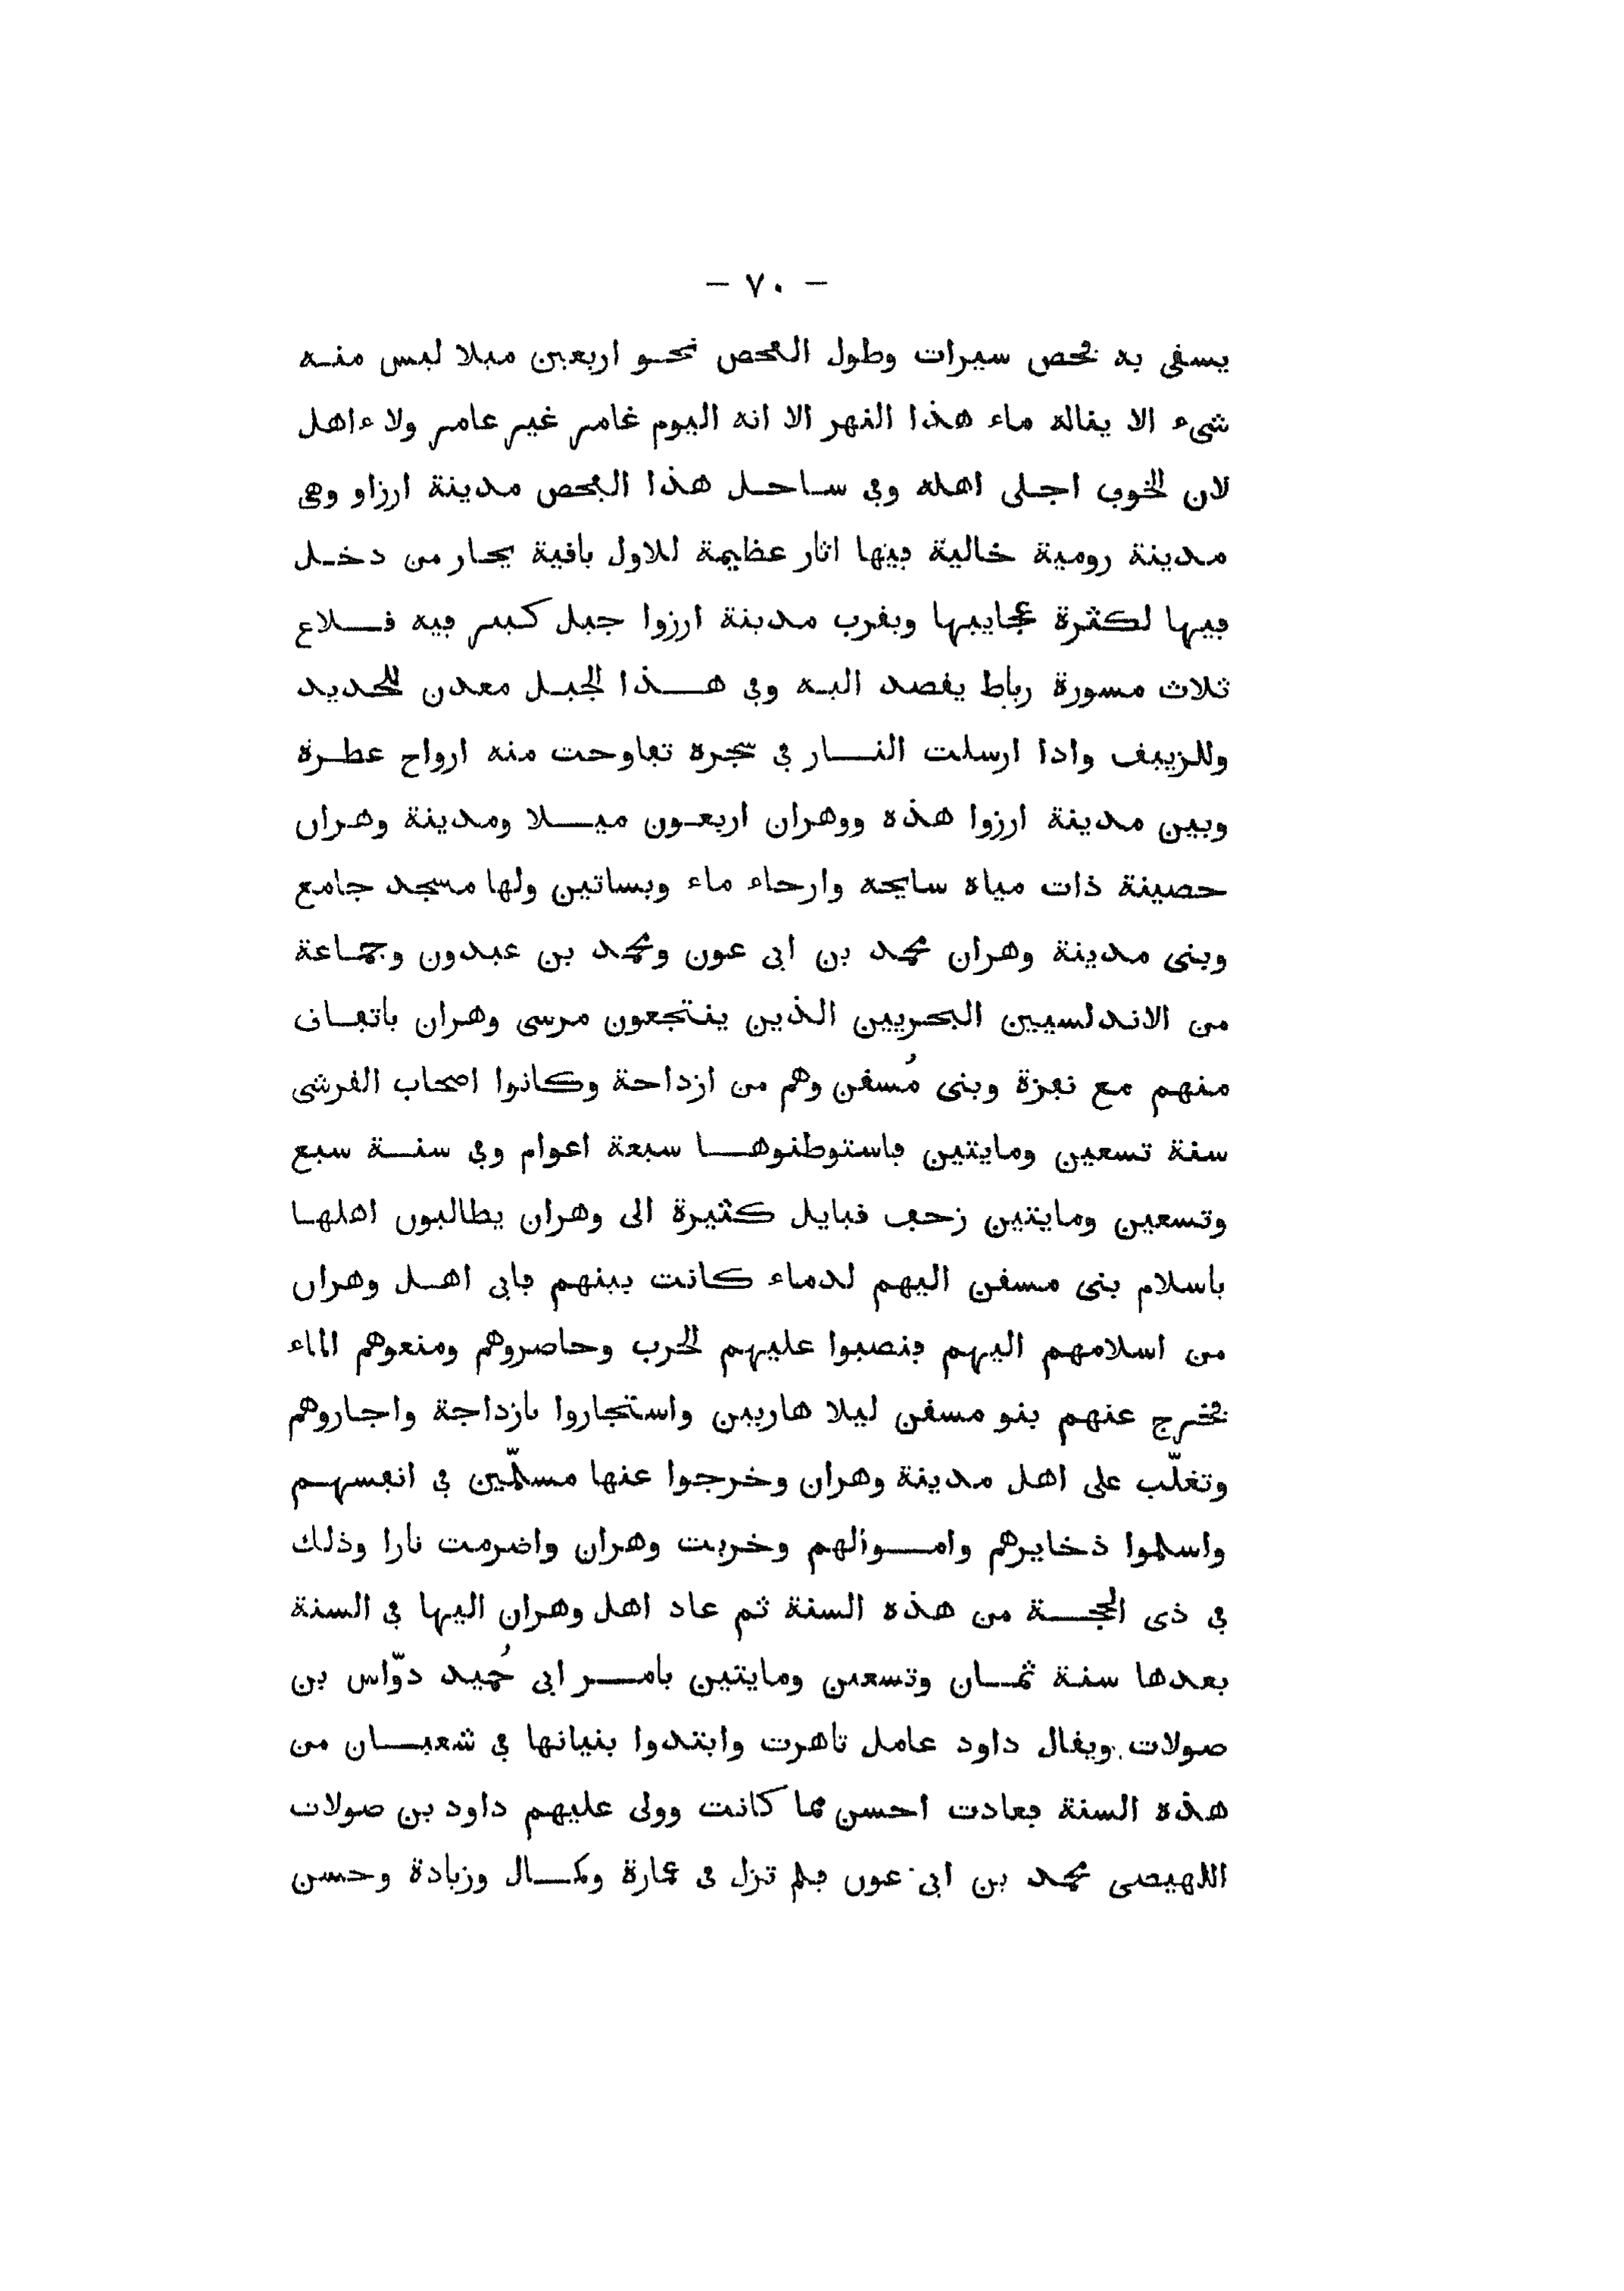 - ٧٠ -
يسقى به فحص سيرات وطول الفحص نحو اربعين ميلا ليس منه
شىء الا يناله ماء هذا النهر الا انه اليوم غامر غير عامر ولا ءاهل
لان الخوف اجلى اهله وفى ساحل هذا الفحص مدينة ارزاو وهى
مدينة رومية خالية فيها اثار عظيمة للاول باقية يحار من دخل
فيها لكثرة عجايبها وبقرب مدينة ارزوا جبل كبير فيه قلاع
ثلاث مسورة رباط يقصد اليه وفى هذا الجبل معدن للحديد
وللزيبق واذا ارسلت النار فى شجره تفاوحت منه ارواح عطرة
وبين مدينة ارزوا هذه ووهران اربعون ميلا ومدينة وهران
حصينة ذات مياه سايحه وارحاء ماء وبساتين ولها مسجد جامع
وبنى مدينة وهران محمد بن ابى عون ومحمد بن عبدون وجماعة
من الاندلسيين البحريين الذين ينتجعون مرسى وهران باتفاق
منهم مع نفزة وبنى مُسقن وهم من ازداجة وكانوا اصحاب القرشى
سنة تسعين ومايتين فاستوطنوها سبعة اعوام وفى سنة سبع
وتسعين ومايتين زحف قبايل كثيرة الى وهران يطالبون اهلها
باسلام بنى مسقن اليهم لدماء كانت بينهم فابى اهل وهران
من اسلامهم اليهم فنصبوا عليهم الحرب وحاصروهم ومنعوهم الماء
فخرج عنهم بنو مسقن ليلا هاربين واستجاروا بازداجة واجاروهم
وتغلّب على اهل مدينة وهران وخرجوا عنها مسلّمين فى انفسهم
واسلموا ذخايرهم واموالهم وخربت وهران واضرمت نارا وذلك
فى ذى الحجة من هذه السنة ثم عاد اهل وهران اليها فى السنة
بعدها سنة ثمان وتسعين ومايتين بامر ابى حُميد دوّاس بن
صولات ويقال داود عامل تاهرت وابتدوا بنيانها فى شعبان من
هذه السنة فعادت احسن مما كانت وولى عليهم داود بن صولات
اللهيصى محمد بن ابى عون فلم تزل فى عمارة وكمال وزيادة وحسن